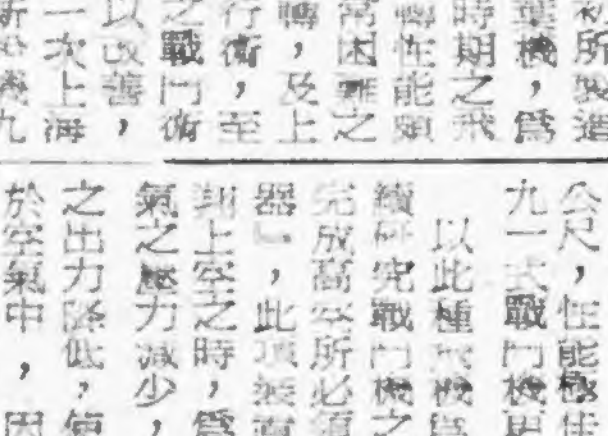 所製造
葉機，爲
時期之飛
轉性能頗
常困難之
轉，及上
行術，至
之戰鬥術
以改善，
一次上海
九
公尺，性能極佳
九一式戰鬥機
以此種飛機爲
續研究戰鬥機之
完成高空所必須
器」，此項裝置
到上空之時，爲
氣之壓力減少，
之出力降低，使
於空氣中，因